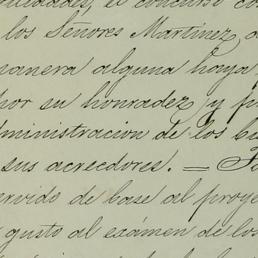 el concurso
los Señores Martinez,
manera alguna haya
por su honradez y
ministracion de los
sus acreedores. =
servido de base al proye
gusto al exámen de los